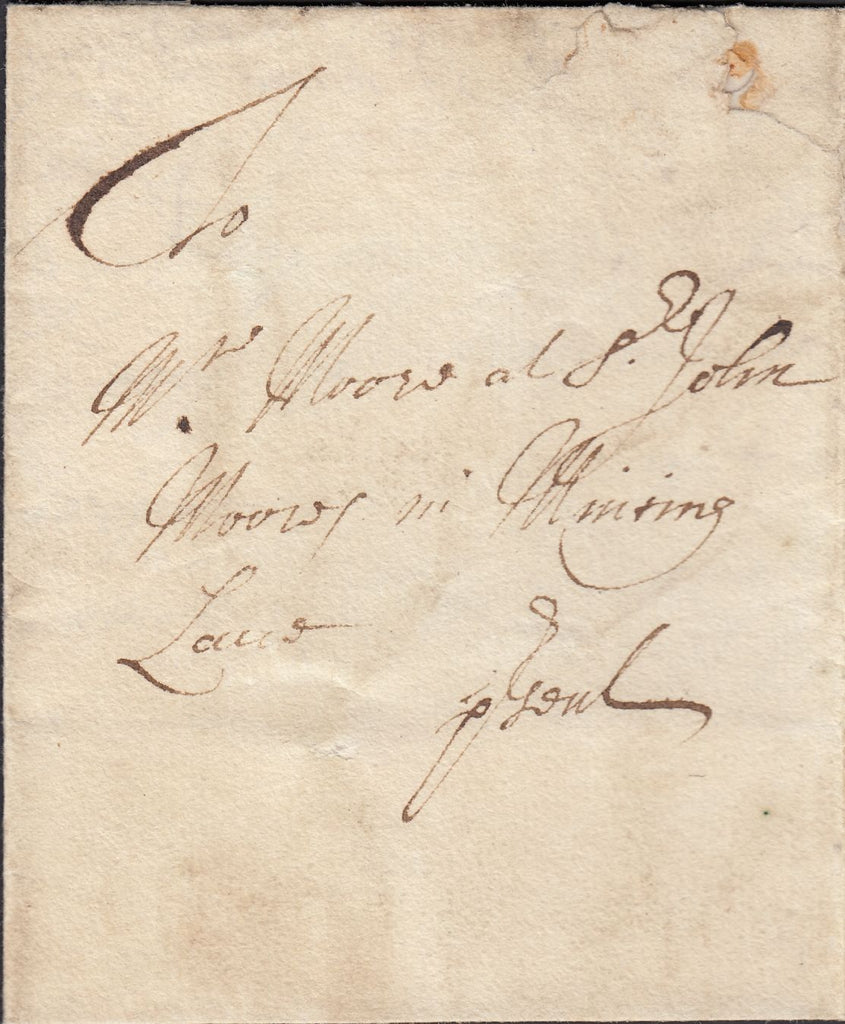 To
Mrs Moore at Sr. John
Moores in Minsing
Lane
prsent